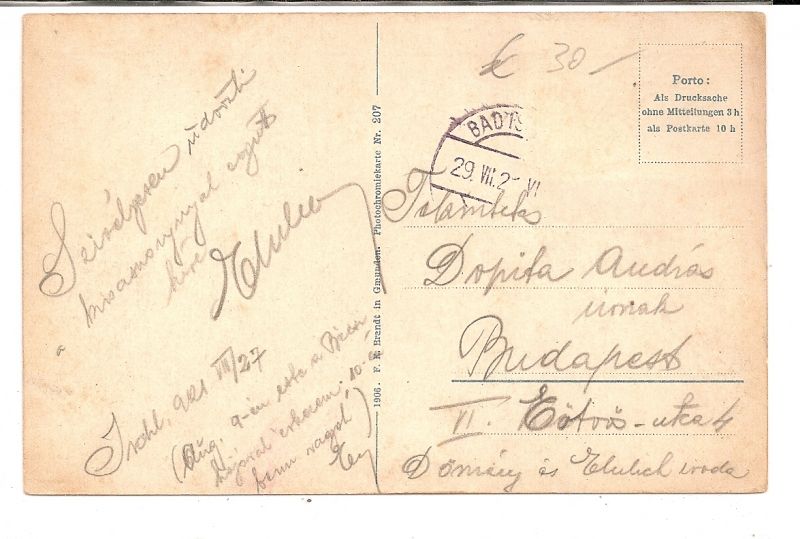 Szivélyesen üdvözli
kisasszonnyal együtt
híve
Ischl, 921 VII/27
(Aug. 9-én este a Bécsi
hajóval érkezem, 10-én
benn vagyok)
1906. F. E. Brandt in Gmunden. Photochromiekarte Nr. 207
k 30-
Porto:
Als Drucksache
ohne Mitteilungen 3 h
als Postkarte 10 h
BAD IS
29. VII. 2 VI
Tekintetes
Dopita András
úrnak
Budapest
VI. Eötvös-utca 4
Domány és Ehrlich iroda